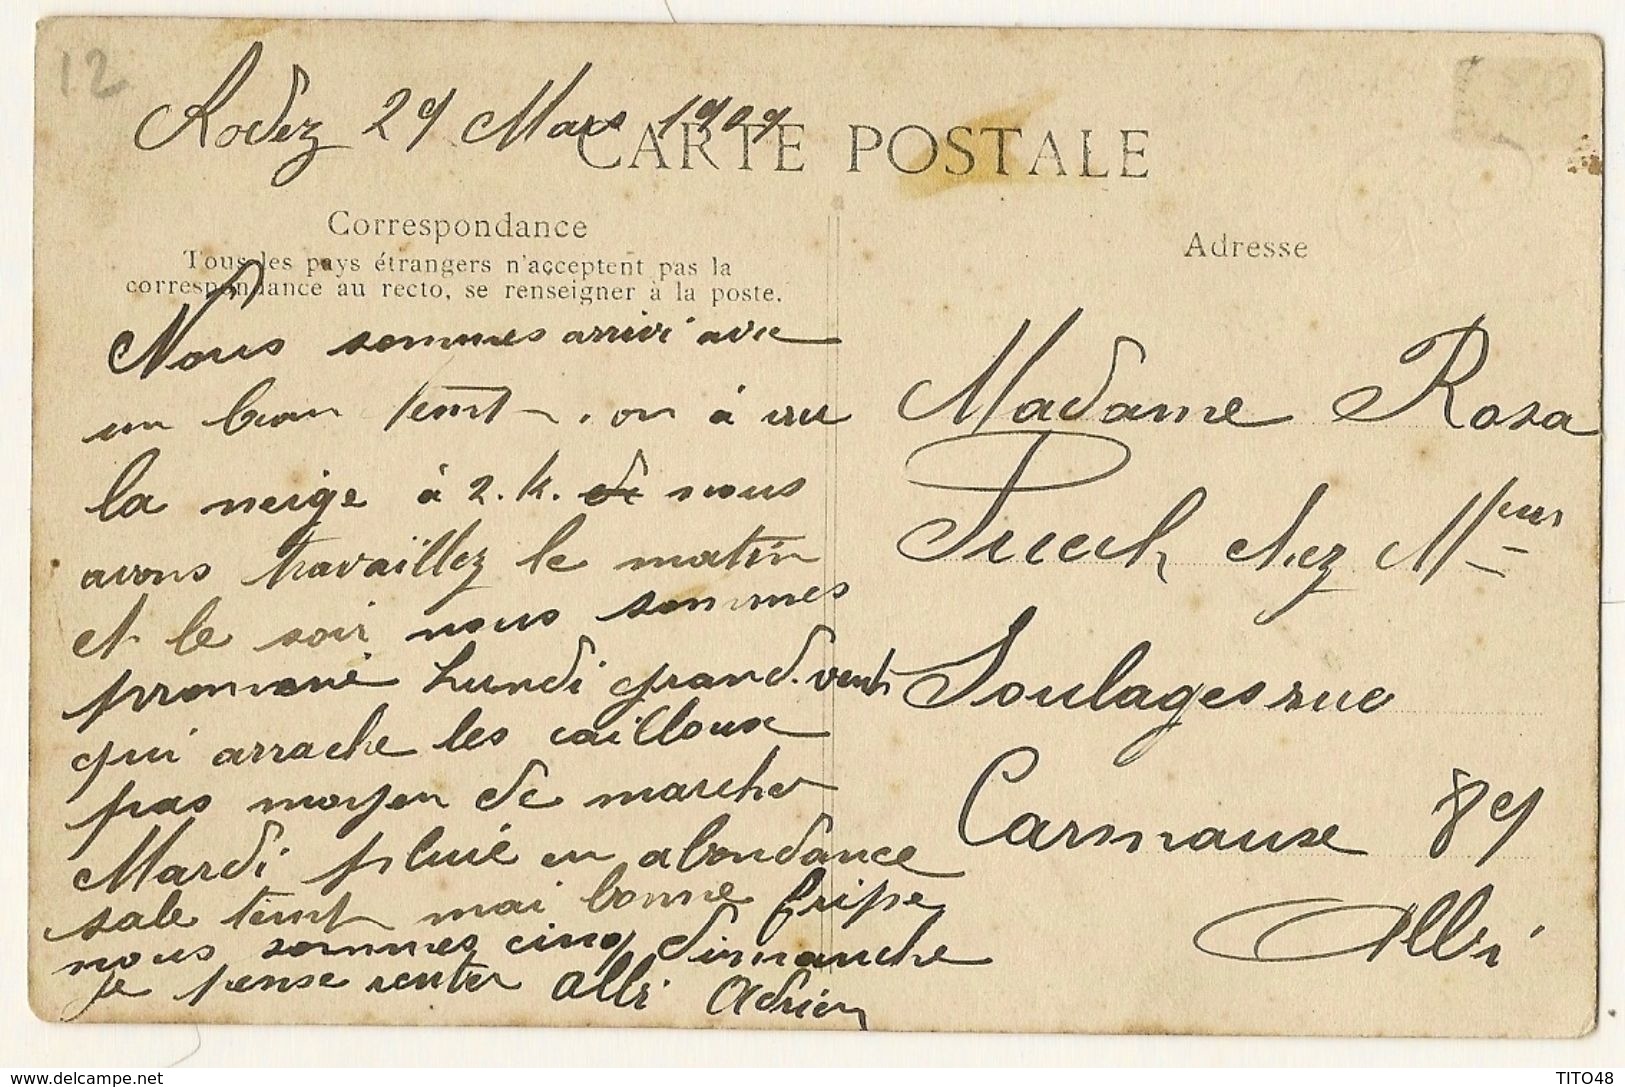 12
Rodez 29 Mars 1909
CARTE POSTALE
Correspondance
Tous les pays étrangers n'acceptent pas la
correspondance au recto, se renseigner à la poste.
Nous sommes arrivé avec
un beau temt, on à vu
la neige à 2.k. nous
avons travaïllez le matin
et le soir nous sommes
promené Lundi grand. vent
qui arrache les cailloux
pas moyen de marcher
Mardi pluié en abondance
sale temt mai bonne fripe
nous sommes cinq dimanche
je pense renter Albi Adrien
Adresse
Madame Rosa
Puech chez Mr
Soulages rue
Carmaux 89
Albi
www.delcampe.net
TITO48